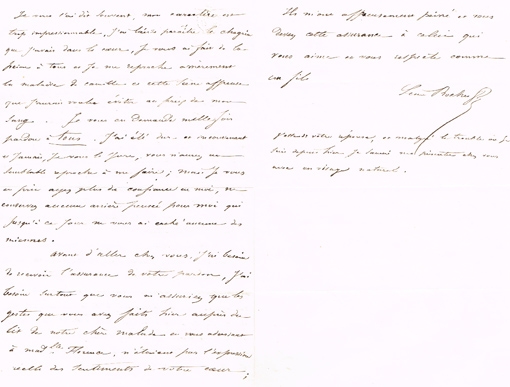 Je vous l'ai dit souvent, mon caractère est
trop impressionnable, j'ai laissé paraître le chagrin
que j'avais dans le cœur, je vous ai fait de la
peine à tous et je me reproche amèrement
la maladie de
que j'aurais voulu éviter au prix de mon
sang. Je vous en demande mille fois
pardon à tous. J'ai été dur en ce moment
et jamais, je vous le jure, vous n'aurez un
semblable reproche à me faire, mais je vous
en prie ayez plus de confiance en moi, ne
conservez aucune arrière pensée pour moi qui
jusqu'à ce jour ne vous ai caché aucune des
miennes.
avant d'aller chez vous, j'ai besoin
de recevoir l'assurance de votre pardon, j'ai
besoin surtout que vous m'assuriez que les
gestes que vous avez faits hier auprès du
lit de notre chère malade en vous adressant
à mad.lle Florence, n'étaient pas l'expression
réelle des sentiments de votre cœur;
Ils m'ont affreusement peiné et vous
devez cette assurance à celui qui
vous aime et vous respecte comme
un fils
J'attends votre réponse, et malgré le trouble où je
suis depuis hier je saurai me présenter chez vous
avec un visage naturel.